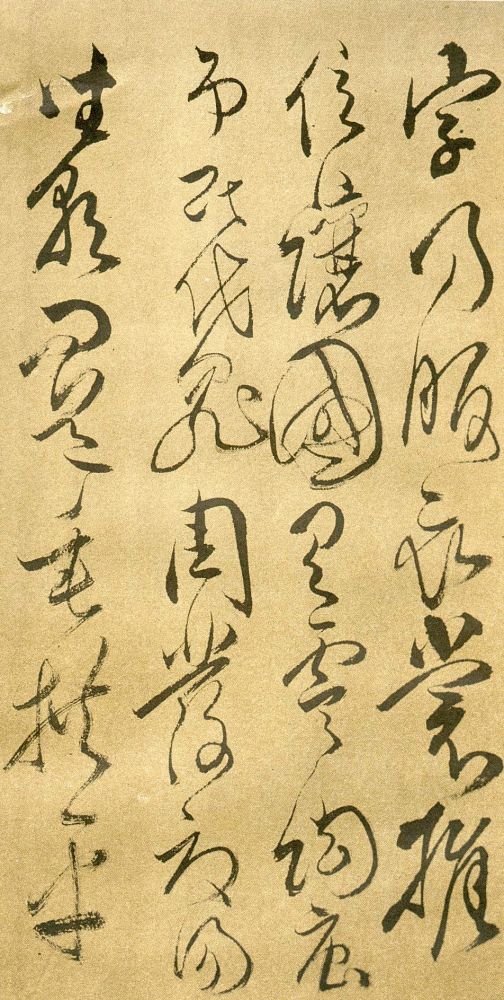 字乃服衣裳推
位讓國有虞陶唐
弔民伐罪周發殷湯
坐朝問道垂拱平